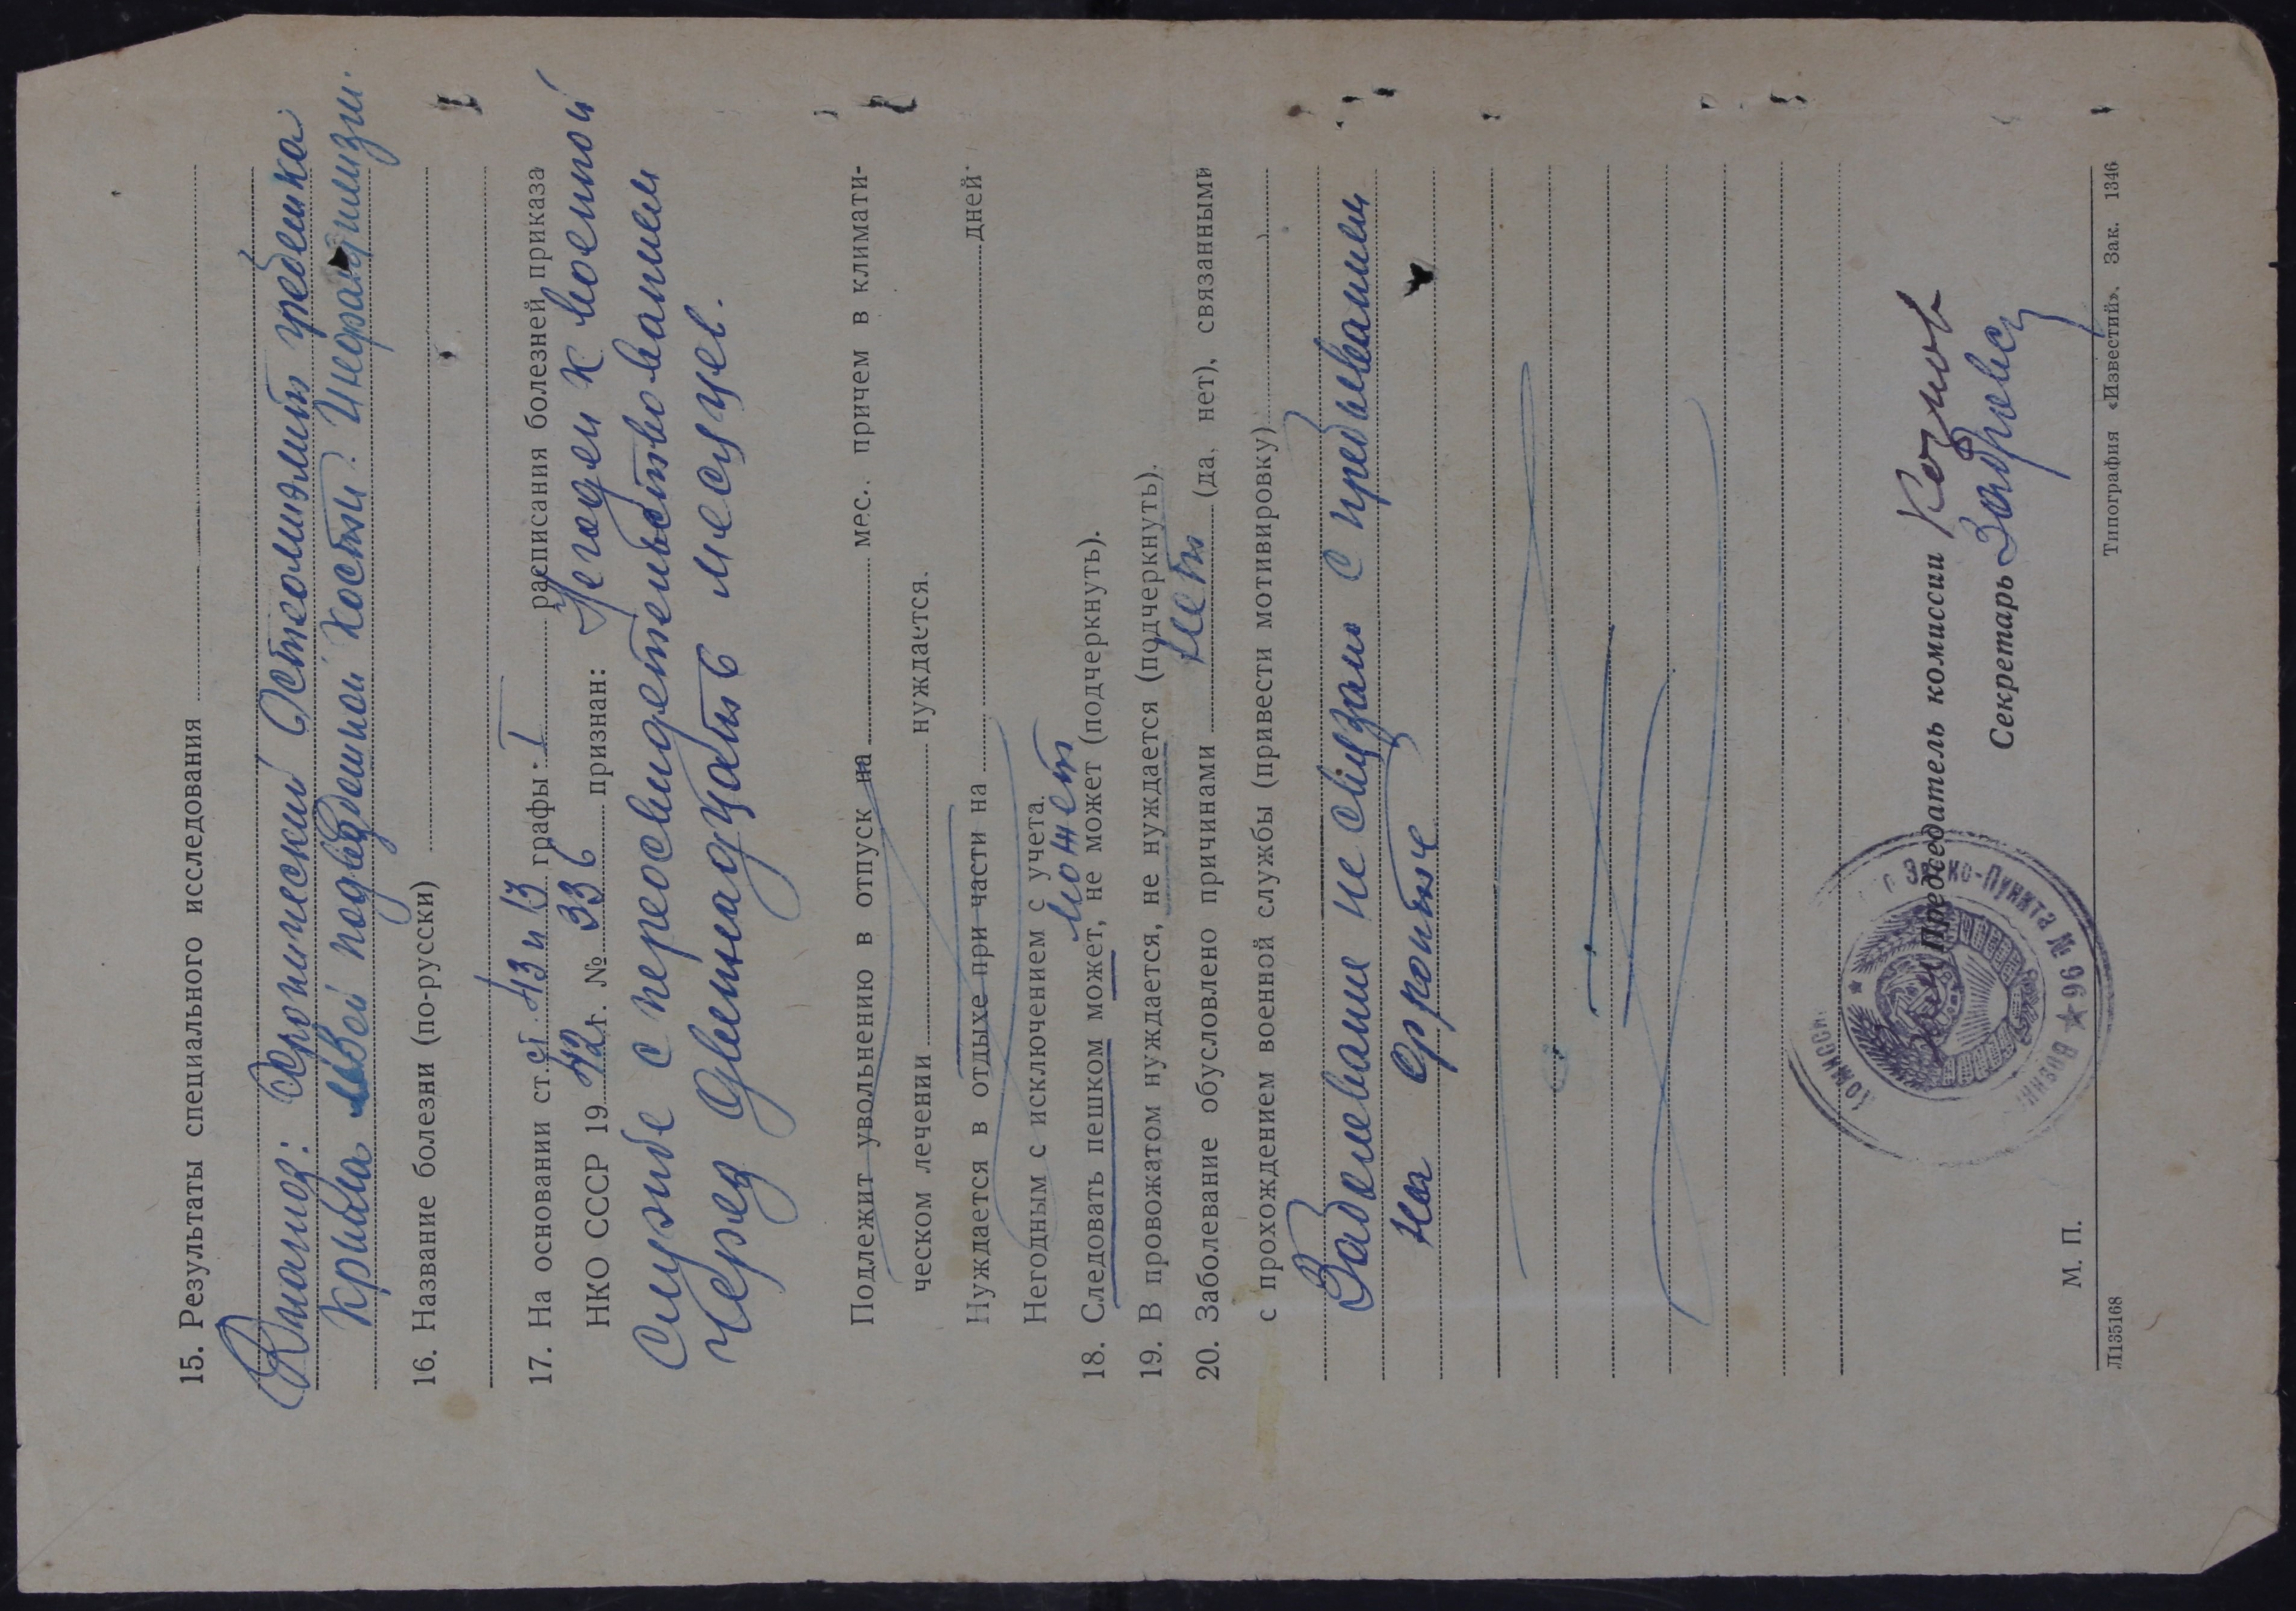 15. Результаты специального исследования
Диагноз: Хронический Остеомиэлит гребешка
крыла левой подвздошной кости.
16. Название болезни (по-русски)
17. На основании ст. ст. 43 и 13 графы I расписания болезней приказа
НКО СССР 1942 г. № 336 признан: Негоден к военной
службе с переосвидетельствованием
через двенадцать 6 месяцев.
Подлежит увольнению в отпуск на мес. причем в климати-
ческом лечении нуждается.
Нуждается в отдыхе при части на дней
Негодным с исключением с учета.
может
18. Следовать пешком может, не может (подчеркнуть).
19. В провожатом нуждается, не нуждается (подчеркнуть).
20. Заболевание обусловлено причинами нет (да, нет), связанными
с прохождением военной службы (привести мотивировку)
Заболевание не связано с пребыванием
на фронте
Председатель комиссии
Секретарь
КОМИССИ
-Пункта № 96 ★
М. П.
Л135168 Типография «Известий». Зак. 1346